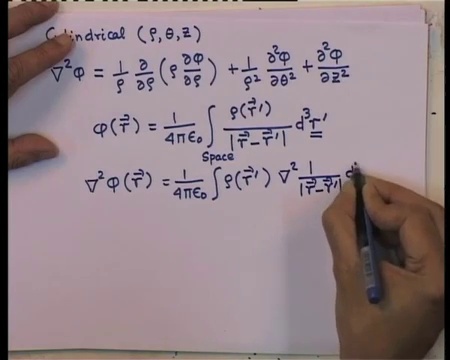 Cylindrical (ρ, θ, z)
∇²φ = 1/ρ ∂/∂ρ (ρ ∂φ/∂ρ) + 1/ρ² ∂²φ/∂θ² + ∂²φ/∂z²
φ(r⃗) = 1/4πε₀ ∫ ρ(r⃗')/|r⃗-r⃗'| d³r'
Space
∇²φ(r⃗) = 1/4πε₀ ∫ ρ(r⃗') ∇² 1/|r⃗-r⃗'| d